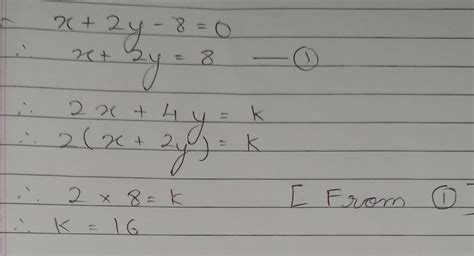 x + 2y - 8 = 0
∴ x + 2y = 8 — ①
∴ 2x + 4y = k
∴ 2(x + 2y) = k
∴ 2 × 8 = k [From ①
∴ k = 16